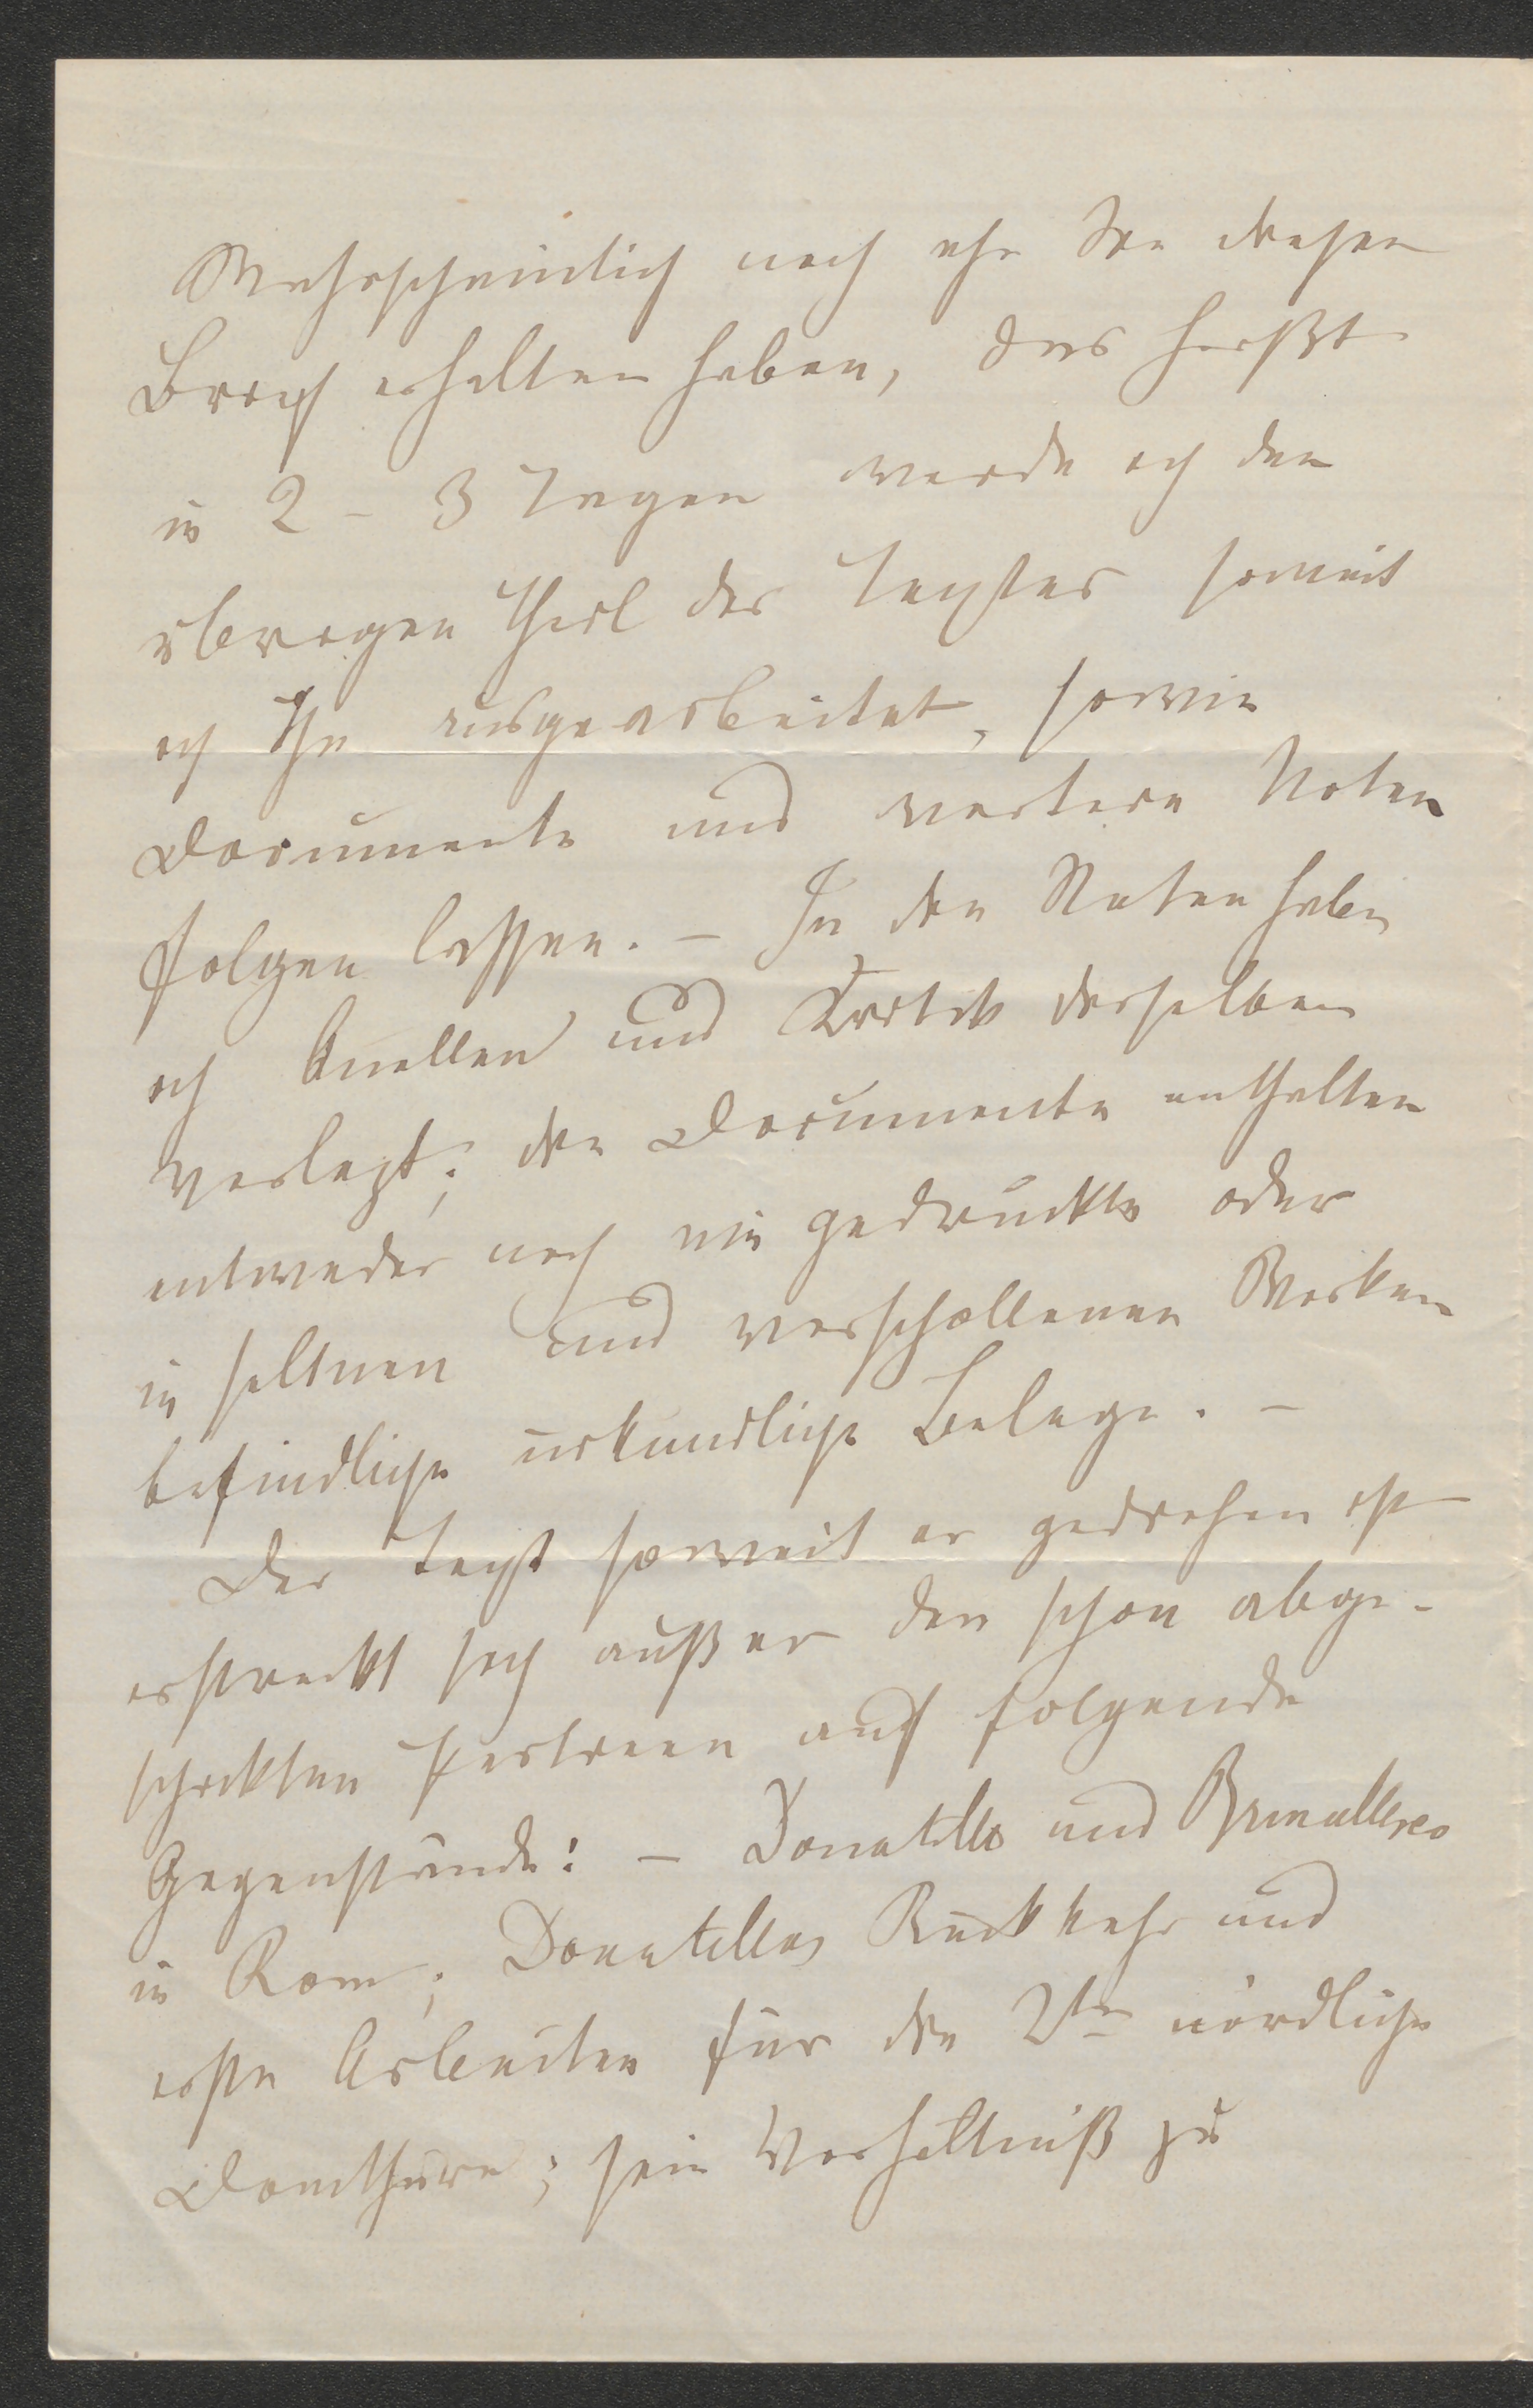 Wahrscheinlich noch ehe Sie diesen
Brief erhalten haben, das heißt
in 2 – 3 Tagen werde ich den
übrigen Theil des Textes soweit
ich ihn ausgearbeitet, sowie
Documente und weitere Noten
folgen lassen. – In die Noten habe
ich Quellen und Kritik derselben
verlegt; die Documente enthalten
entweder noch nie gedruckte oder
in seltnen und verschollenen Werken
befindliche urkundliche Belege. –
Der Text soweit er gediehen ist
erstreckt sich außer den schon abge-
schickten Partieen auf folgende
Gegenstände: – Donatello und Brunellesco
in Rom; Donatellos Rückkehr und
erste Arbeiten für die 2te nördliche
Domthüre; sein Verhältniß zu